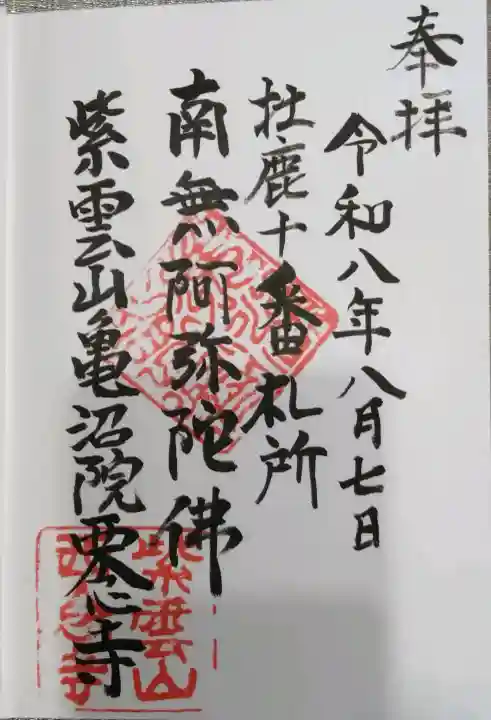 奉拝
令和八年八月七日
牡鹿十番札所
南無阿弥陀佛
紫雲山亀沼院寺
紫雲山